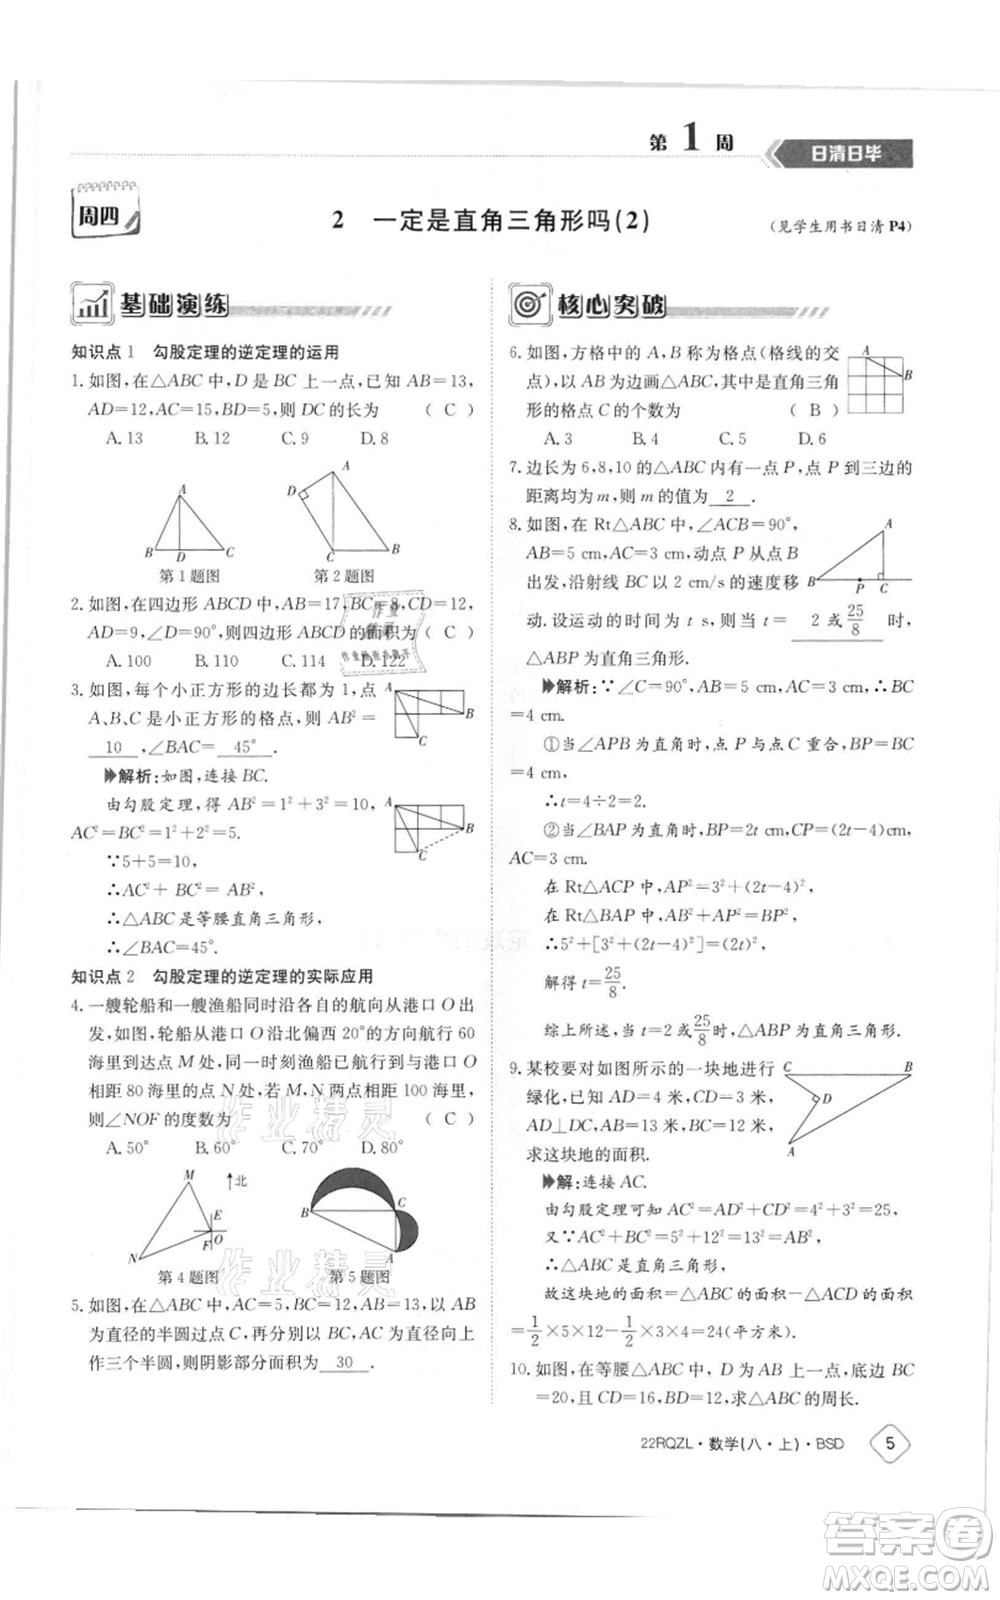 第1周
日清日毕
周四
2 一定是直角三角形吗(2)
(见学生用书日清P4)
基础演练
知识点1 勾股定理的逆定理的运用
1.如图,在△ABC中,D是BC上一点,已知AB=13,
AD=12,AC=15,BD=5,则DC的长为 ( C )
A.13 B.12 C.9 D.8
A
B D C
第1题图
A
D
C B
第2题图
2.如图,在四边形ABCD中,AB=17,BC=8,CD=12,
AD=9,∠D=90°,则四边形ABCD的面积为 ( C )
A.100 B.110 C.114 D.122
3.如图,每个小正方形的边长都为1,点
A、B、C是小正方形的格点,则AB²=
10 ,∠BAC= 45° .
A
B
C
解析:如图,连接BC.
由勾股定理,得AB²=1²+3²=10,
AC²=BC²=1²+2²=5.
∵5+5=10,
∴AC²+BC²=AB²,
∴△ABC是等腰直角三角形,
∴∠BAC=45°.
A
B
C
知识点2 勾股定理的逆定理的实际应用
4.一艘轮船和一艘渔船同时沿各自的航向从港口O出
发,如图,轮船从港口O沿北偏西20°的方向航行60
海里到达点M处,同一时刻渔船已航行到与港口O
相距80海里的点N处,若M、N两点相距100海里,
则∠NOF的度数为 ( C )
A.50° B.60° C.70° D.80°
M
北
E
O
F
N
第4题图
C
B
A
第5题图
5.如图,在△ABC中,AC=5,BC=12,AB=13,以AB
为直径的半圆过点C,再分别以BC、AC为直径向上
作三个半圆,则阴影部分面积为 30 .
核心突破
6.如图,方格中的A,B称为格点(格线的交
点),以AB为边画△ABC,其中是直角三角
形的格点C的个数为 ( B )
A.3 B.4 C.5 D.6
A
B
7.边长为6,8,10的△ABC内有一点P,点P到三边的
距离均为m,则m的值为 2 .
8.如图,在Rt△ABC中,∠ACB=90°,
AB=5 cm,AC=3 cm,动点P从点B
出发,沿射线BC以2 cm/s的速度移
动.设运动的时间为t s,当t= 2或25/8 时,
△ABP为直角三角形.
A
B P C
解析:∵∠C=90°,AB=5 cm,AC=3 cm,∴BC
=4 cm.
①当∠APB为直角时,点P与点C重合,BP=BC
=4 cm,
∴t=4÷2=2.
②当∠BAP为直角时,BP=2t cm,CP=(2t-4)cm,
AC=3 cm.
在Rt△ACP中,AP²=3²+(2t-4)²,
在Rt△BAP中,AB²+AP²=BP²,
∴5²+[3²+(2t-4)²]=(2t)²,
解得t=25/8.
综上所述,当t=2或25/8时,△ABP为直角三角形.
9.某校要对如图所示的一块地进行
绿化,已知AD=4米,CD=3米,
AD⊥DC,AB=13米,BC=12米,
求这块地的面积.
C B
D
A
解:连接AC.
由勾股定理可知AC²=AD²+CD²=4²+3²=25,
又∵AC²+BC²=5²+12²=13²=AB²,
∴△ABC是直角三角形,
故这块地的面积=△ABC的面积-△ACD的面积
=1/2×5×12-1/2×3×4=24(平方米).
10.如图,在等腰△ABC中,D为AB上一点,底边BC
=20,且CD=16,BD=12,求△ABC的周长.
22RQZL·数学(八·上)·BSD
5
作业精灵
作业精灵
答案卷
MXQE.COM